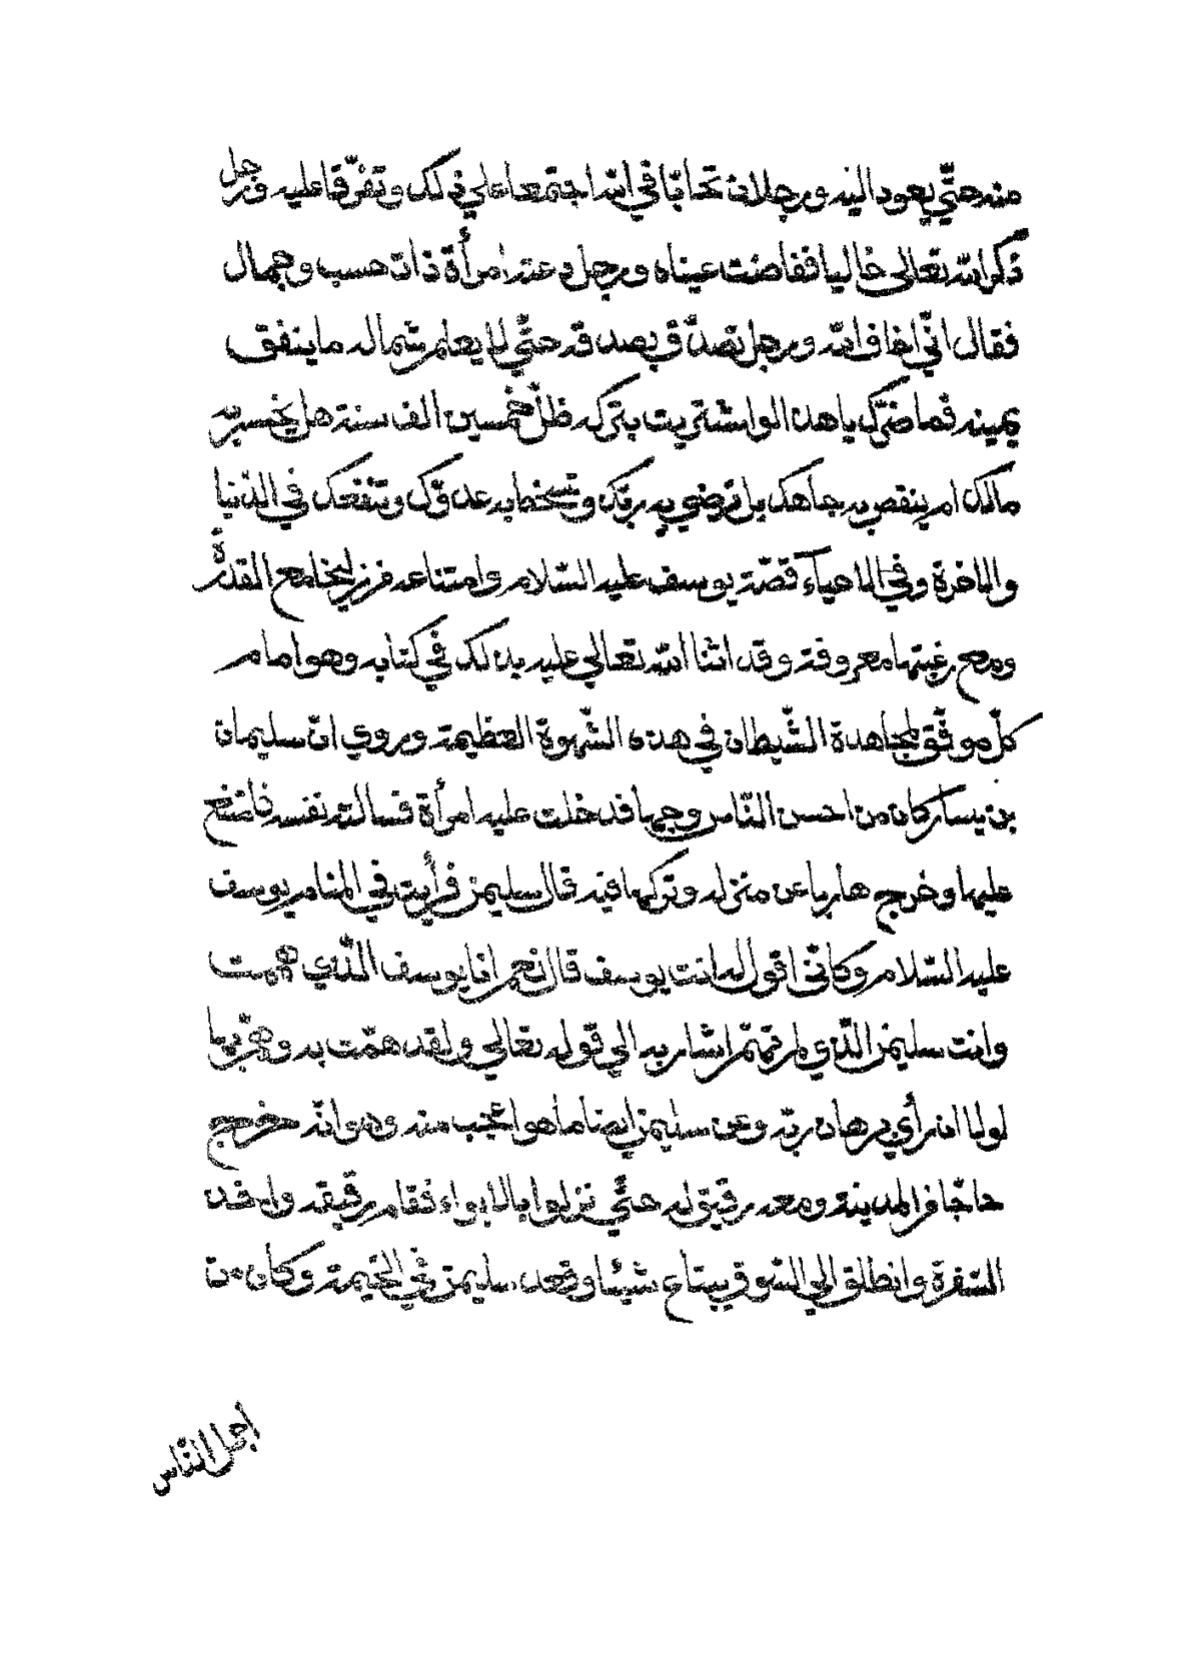 منه حتّي يعود اليه ورجلان تحابّا في الله اجتمعا علي ذلك وتفرّقا عليه ورجل
ذكر الله تعالي خاليا ففاضت عيناه ورجل دعته امرأة ذات حسب وجمال
فقال انّي اخاف الله ورجل تصدّق بصدقة حتّي لا يعلم شماله ما ينفق
يمينه فما ضرّك يا هذا لو اشتريت بتركه ظلّ خمسين الف سنة هل يخسر به
مالك ام ينقص به جاهك بل ترضي به ربّك وتسخط به عدوّك وتنفعك في الدّنيا
والاخرة وفي الاحياء قصّة يوسف عليه السّلام وامتناعه من زليخا مع القدرة
ومع رغبتها معروفة وقد اثنا الله تعالي عليه بذلك في كتابه وهو امام
كلّ موفّق لمجاهدة الشّيطان في هذه الشّهوة العظيمة وروي انّ سليمان
بن يسار كان من احسن النّاس وجها فدخلت عليه امرأة فسالته نفسه فامتنع
عليها وخرج هاربا عن منزله وتركها فيه قال سليمن فرأيت في المنام يوسف
عليه السّلام وكانّي اقول له انت يوسف قال نعم انا يوسف الّذي هممت
وانت سليمن الّذي لم تهمّ اشار به الي قوله تعالي ولقد همّت به وهمّ بها
لولا ان رأي برهان ربّه وعن سليمن ايضا ما هو اعجب منه وهو انّه خرج
حاجّا من المدينة ومعه رفيق له حتّي نزلوا بالابواء فقام رفيقه واخذ
السّفرة وانطلق الي السّوق يبتاع شيئا وقعد سليمن في الخيمة وكان من
اجمل النّاس